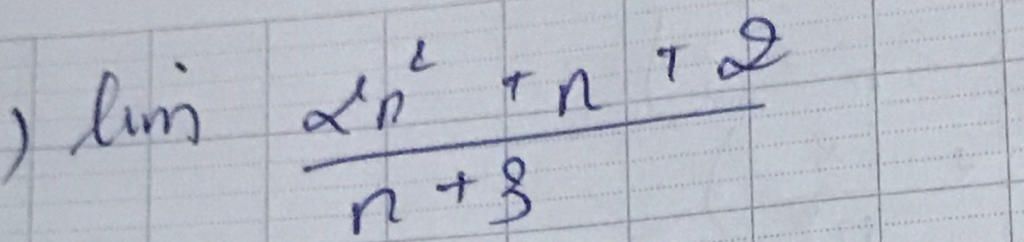 ) lim (2n² + n + 2) / (n + 3)